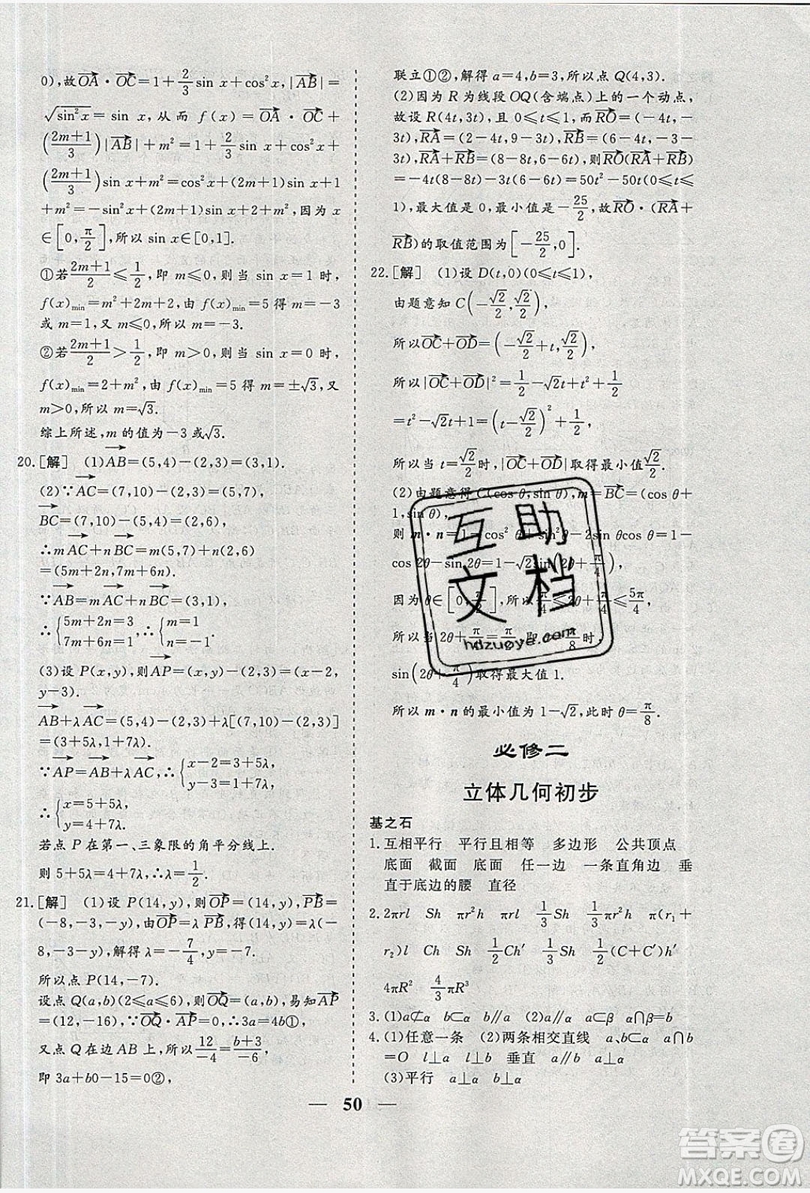 0),故OA·OC=1+2/3 sin x+cos²x,|AB|=
√sin²x=sin x,从而 f(x)=OA·OC-
(2m+1/3)|AB|+m²=1+2/3 sin x+cos²x-
(2m+1/3)sin x+m²=cos²x-(2m+1)sin x+1
+m²=-sin²x-(2m+1)sin x+2+m²,因为 x
∈[0,π/2],所以 sin x∈[0,1].
①若2m+1/2≤-1/2,即 m≤-1,则当 sin x=1 时,
f(x)min=-2m+m²,由 f(x)min=5 得 m=-3
或 m=1,所以 m=-3.
②若2m+1/2>-1/2,即 m>-1,则当 sin x=0 时,
f(x)min=2+m²,由 f(x)min=5 得 m=±√3,又
m>0,所以 m=√3.
综上所述,m 的值为-3 或√3.
20.[解] (1)AB=(5,4)-(2,3)=(3,1).
(2)∵AC=(7,10)-(2,3)=(5,7),
BC=(7,10)-(5,4)=(2,6),
∴mAC+nBC=m(5,7)+n(2,6)
=(5m+2n,7m+6n).
∵AB=mAC+nBC=(3,1),
∴{5m+2n=3
7m+6n=1
(3)设 P(x,y),则AP=(x,y)-(2,3)=(x-2,
y-3).
AB+λAC=(5,4)-(2,3)+λ[(7,10)-(2,3)]
=(3+5λ,1+7λ).
∵AP=AB+λAC,∴{x-2=3+5λ
y-3=1+7λ
∴{x=5+5λ
y=4+7λ
若点 P 在第一、三象限的角平分线上.
则 5+5λ=4+7λ,∴λ=1/2.
21.[解] (1)设 P(14,y),则OP=(14,y),PB=
(-8,-3-y),由OP=λPB,得(14,y)=λ(-
8,-3-y),解得 λ=-7/4,y=-7,
所以点 P(14,-7).
设点 Q(a,b)(2≤a≤6),则OQ=(a,b),易知AP=
(12,-16),∵OQ·AP=0,∴3a=4b①,
又点 Q 在边 AB 上,所以12/-4=b+3/a-6,
即 3a+b-15=0②,
联立①②,解得 a=4,b=3,所以点 Q(4,3).
(2)因为 R 为线段 OQ(含端点)上的一个动点,
故设 R(4t,3t),且 0≤t≤1,则RO=(-4t,-
3t),RA=(2-4t,9-3t),RB=(6-4t,-3-
3t),RA+RB=(8-8t,6-6t),则RO·(RA+RB)
=-4t(8-8t)-3t(6-6t)=50t²-50t(0≤t≤
1),最大值为 0,最小值为-25/2,故RO·(RA+
RB)的取值范围为[-25/2,0].
22.[解] (1)设 D(t,0)(0≤t≤1),
由题意知 C(-√2/2,√2/2),
所以OC+OD=(-√2/2+t,√2/2),
所以|OC+OD|²=(-√2/2+t)²+1/2
=t²-√2t+1=(t-√2/2)²+1/2,
所以当 t=√2/2时,|OC+OD|取得最小值√2/2.
(2)由题意得 C(cosθ,sinθ),m=BC=(cosθ+
1,sinθ),
则 m·n=1-cos²θ+sin²θ-2sinθcosθ=1-
因为 θ∈[0,π/2],所以π/4≤2θ+π/4≤5π/4,
所以当 2θ+π/4=π/2,即 θ=π/8时,
sin(2θ+π/4)取得最大值 1.
所以 m·n 的最小值为 1-√2,此时 θ=π/8.
必修二
立体几何初步
基之石
1.互相平行 平行且相等 多边形 公共顶点
底面 截面 底面 任一边 一条直角边 垂
直于底边的腰 直径
2.2πrl Sh πr²h 1/3Sh 1/3πr²h πrl 1/3Sh
1/3πr²h πl Ch Sh 1/2Ch′ 1/3Sh 1/2(C+C′)h′
4πR² 4/3πR³
3.(1)a⊄α b⊂α a∥α (2)a⊂β b⊂β a∩b
4.(1)任意一条 (2)两条相交直线 a⊂α b⊂α a∩b
=O l⊥a l⊥b 垂直 a∥b a⊥α b⊥α
(3)平行 a⊥α b⊥α
50
互助
文档
hdzuoye.com
答案圈
MXQE.COM